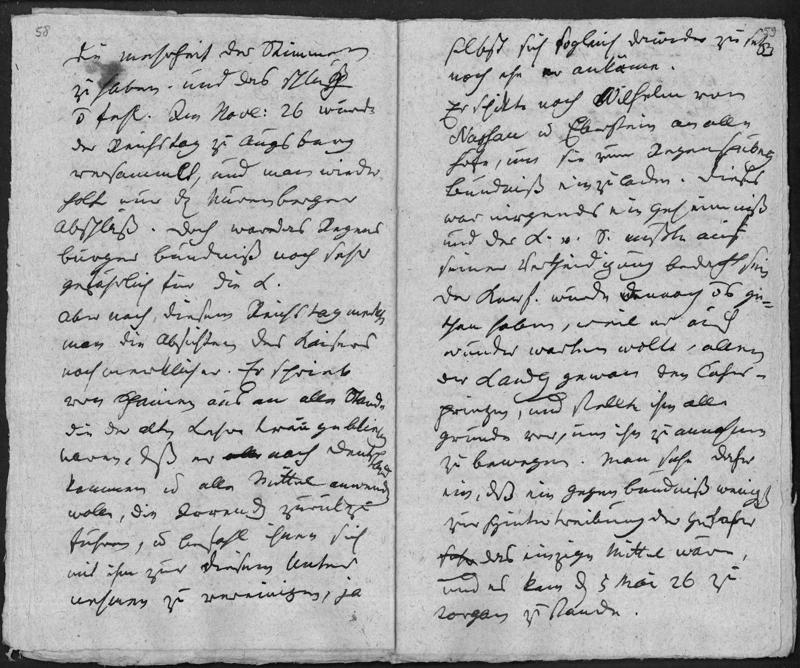 58
die mehrheit der Stimmen
zu haben. und das schlug
fest. Im Nove: 26 wurde
der Reichstag zu Augsburg
versammlt, und man wieder
holt nur dz Nürenberger
Abschluß. Doch war das Regens
burger bündniß noch sehr
gefährlich für die L.
Aber nach diesem Reichstag merkte
man die Absichten des Kaisers
noch merklicher. Er schrieb
von Spanien aus an alle Stände
die der alten Lehre treu geblieben
waren, daß er nach Deutschland
kommen u alle Mittel anwenden
wolle, die zurükzu
führen, u befahl ihnen sich
mit ihm zur diesem Unter
nehmen zu vereinigen, ja
59
selbst sich sogleich darwider zu setzen
noch ehe er ankäme.
Er schikte noch Wilhelm von
Nassau u Eberstein an alle
höfe, um sie zum Regenspurger
bündniß einzuladen. Dieses
war nirgends ein geheimniß
und der L. v. S. mußte auf
seiner Vertheidigung bedacht sein
Der Kurf. würde dennoch gu=
than haben, weil er auch
wunder warten wollte, allein
der Landg gewan den Chur=
prinzen, und stellte ihm alle
gründe vor, um ihn zu annehmen
zu bewegen. Man sahe daher
ein, dß ein gegen bündniß wenigst
zur hintertreibung der gefahr
das einzige Mittel wäre,
und es kam d 5 Mai 26 zu
Torgau zu stande.